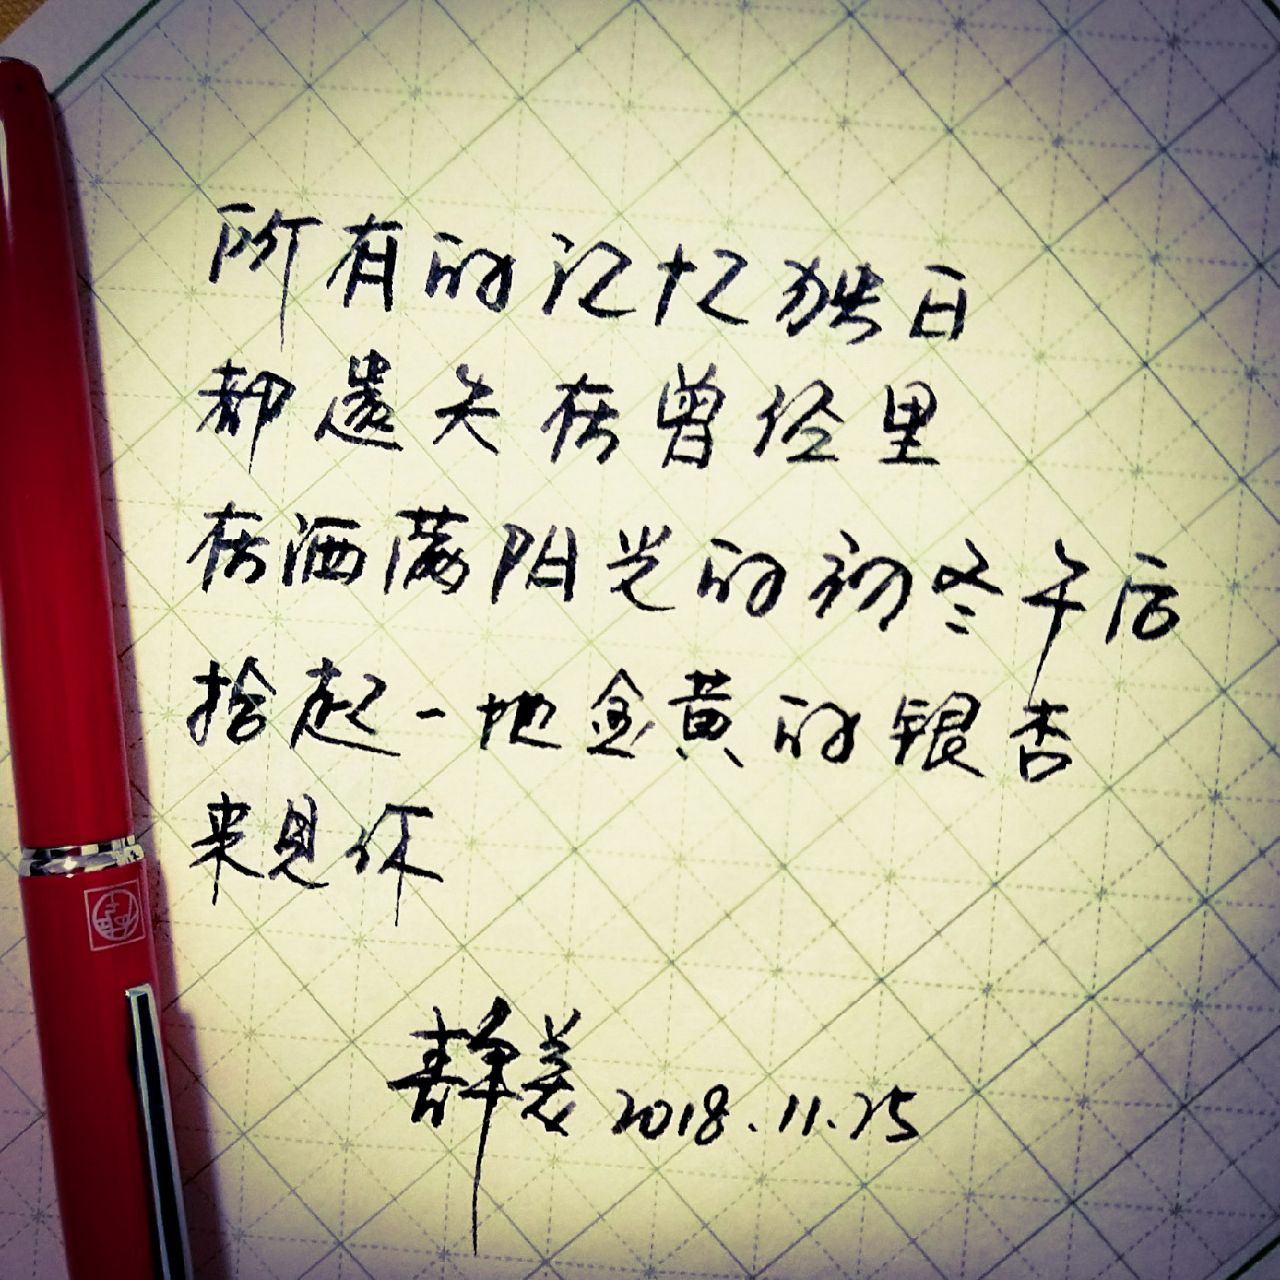 所有的记忆独白
都遗失在曾经里
在洒满阳光的初冬午后
拾起一地金黄的银杏
来见你
静美 2018.11.25